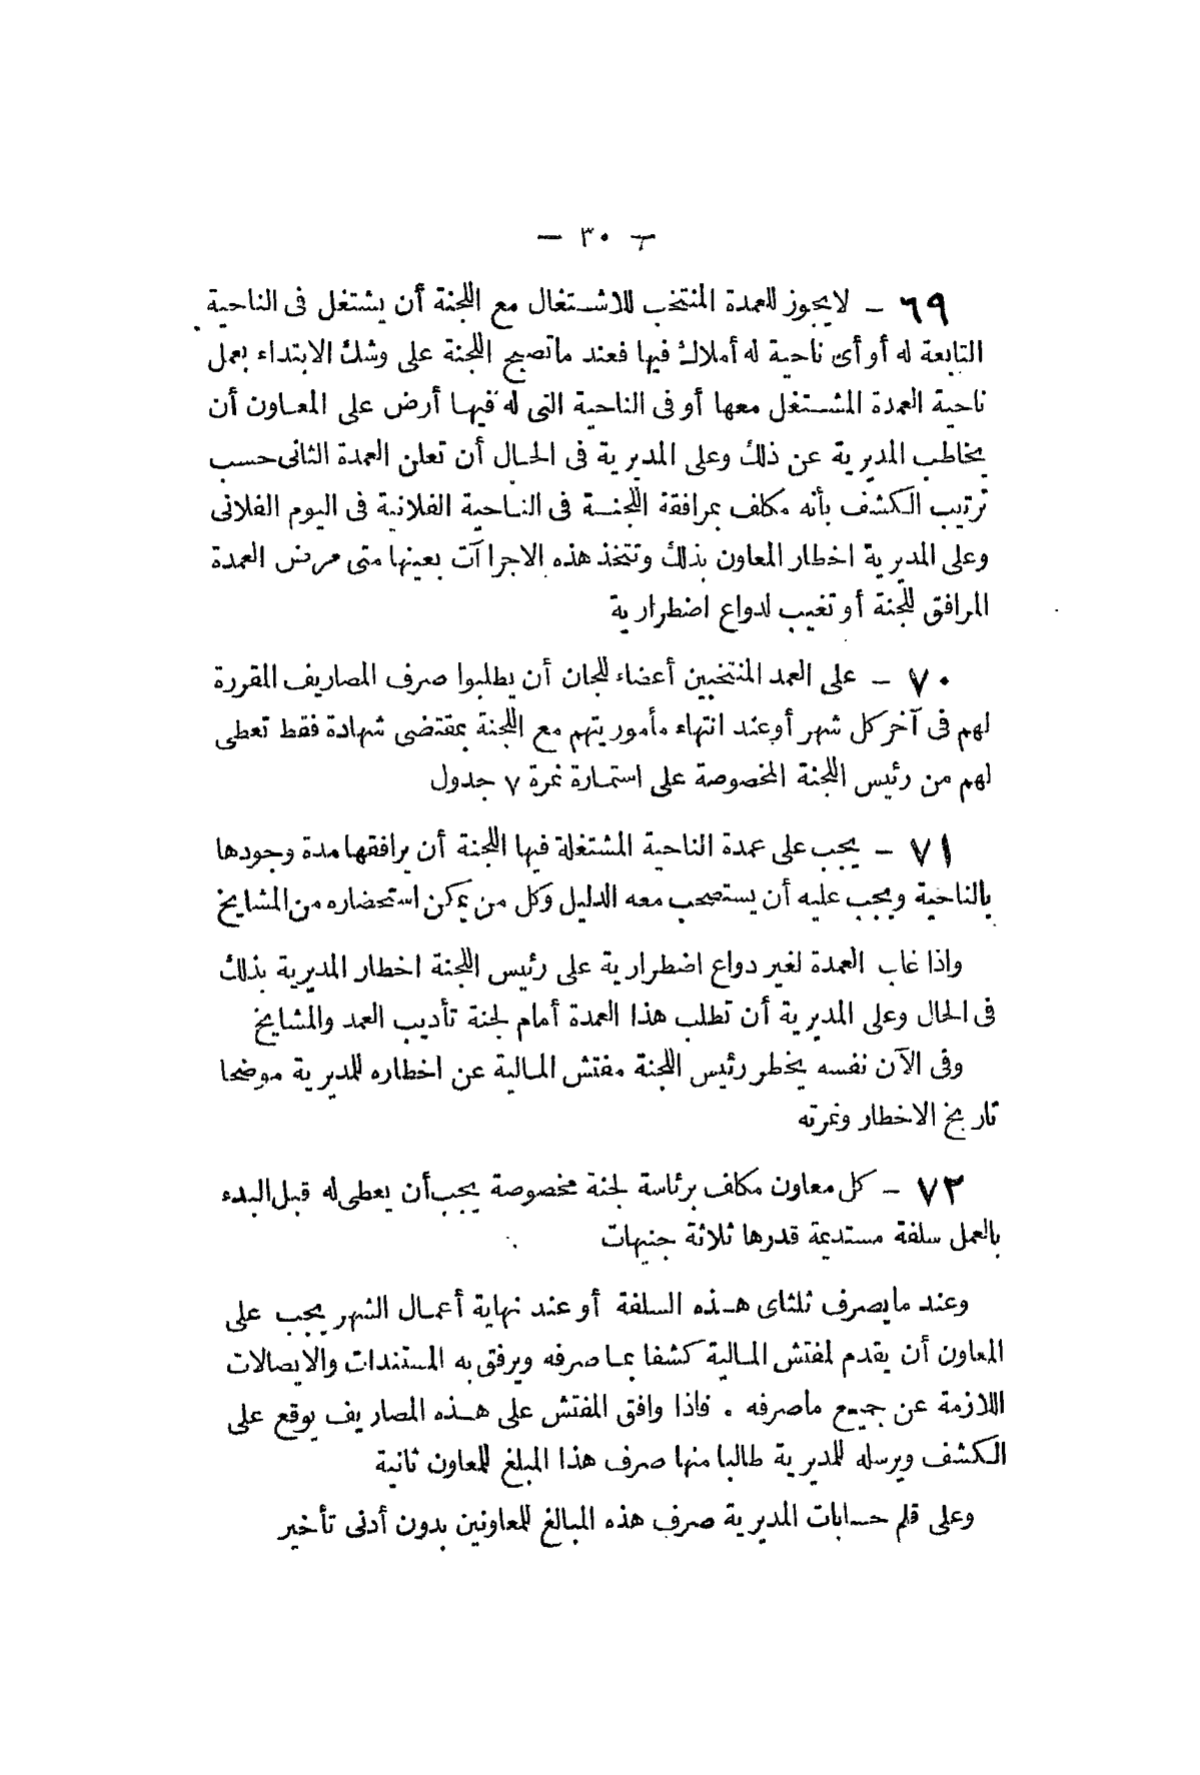 — ٣٠ —
٦٩ – لايجوز للعمدة المنتخب للاشـتغال مع اللجنة أن يشتغل فى الناحية
التابعة له أو أى ناحية له أملاك فيها فعند ماتصبح اللجنة على وشك الابتداء بعمل
ناحية العمدة المشـتغل معها أو فى الناحية التى له فيهـا أرض على المعـاون أن
يخاطب المديرية عن ذلك وعلى المديرية فى الحـال أن تعلن العمدة الثانى حسب
ترتيب الكشف بأنه مكلف بمرافقة اللجنـة فى النـاحية الفلانية فى اليوم الفلانى
وعلى المديرية اخطار المعاون بذلك وتتخذ هذه الاجراآت بعينها متى مرض العمدة
المرافق للجنة أو تغيب لدواع اضطرارية
٧٠ – على العمد المنتخبين أعضاء للجان أن يطلبوا صرف المصاريف المقررة
لهم فى آخر كل شهر أوعند انتهاء مأموريتهم مع اللجنة بمقتضى شهادة فقط تعطى
لهم من رئيس اللجنة المخصوصة على استمارة نمرة ٧ جدول
٧١ – يجب على عمدة الناحية المشتغلة فيها اللجنة أن يرافقها مدة وجودها
بالناحية ويجب عليه أن يستصحب معه الدليل وكل من يمكن استحضاره من المشايخ
واذا غاب العمدة لغير دواع اضطرارية على رئيس اللجنة اخطار المديرية بذلك
فى الحال وعلى المديرية أن تطلب هذا العمدة أمام لجنة تأديب العمد والمشايخ
وفى الآن نفسه يخطر رئيس اللجنة مفتش المـالية عن اخطاره للمديرية موضحا
تاريخ الاخطار ونمرته
٧٢ – كل معاون مكلف برئاسة لجنة مخصوصة يجب أن يعطى له قبل البدء
بالعمل سلفة مستديمة قدرها ثلاثة جنيهات
وعند مايصرف ثلثاى هـذه السلفة أو عند نهاية أعمـال الشهر يجب على
المعاون أن يقدم لمفتش المـالية كشفا بمـا صرفه ويرفق به المستندات والايصالات
اللازمة عن جميع ماصرفه . فاذا وافق المفتش على هـذه المصاريف يوقع على
الكشف ويرسله للمديرية طالبا منها صرف هذا المبلغ للمعاون ثانية
وعلى قلم حسابات المديرية صرف هذه المبالغ للمعاونين بدون أدنى تأخير